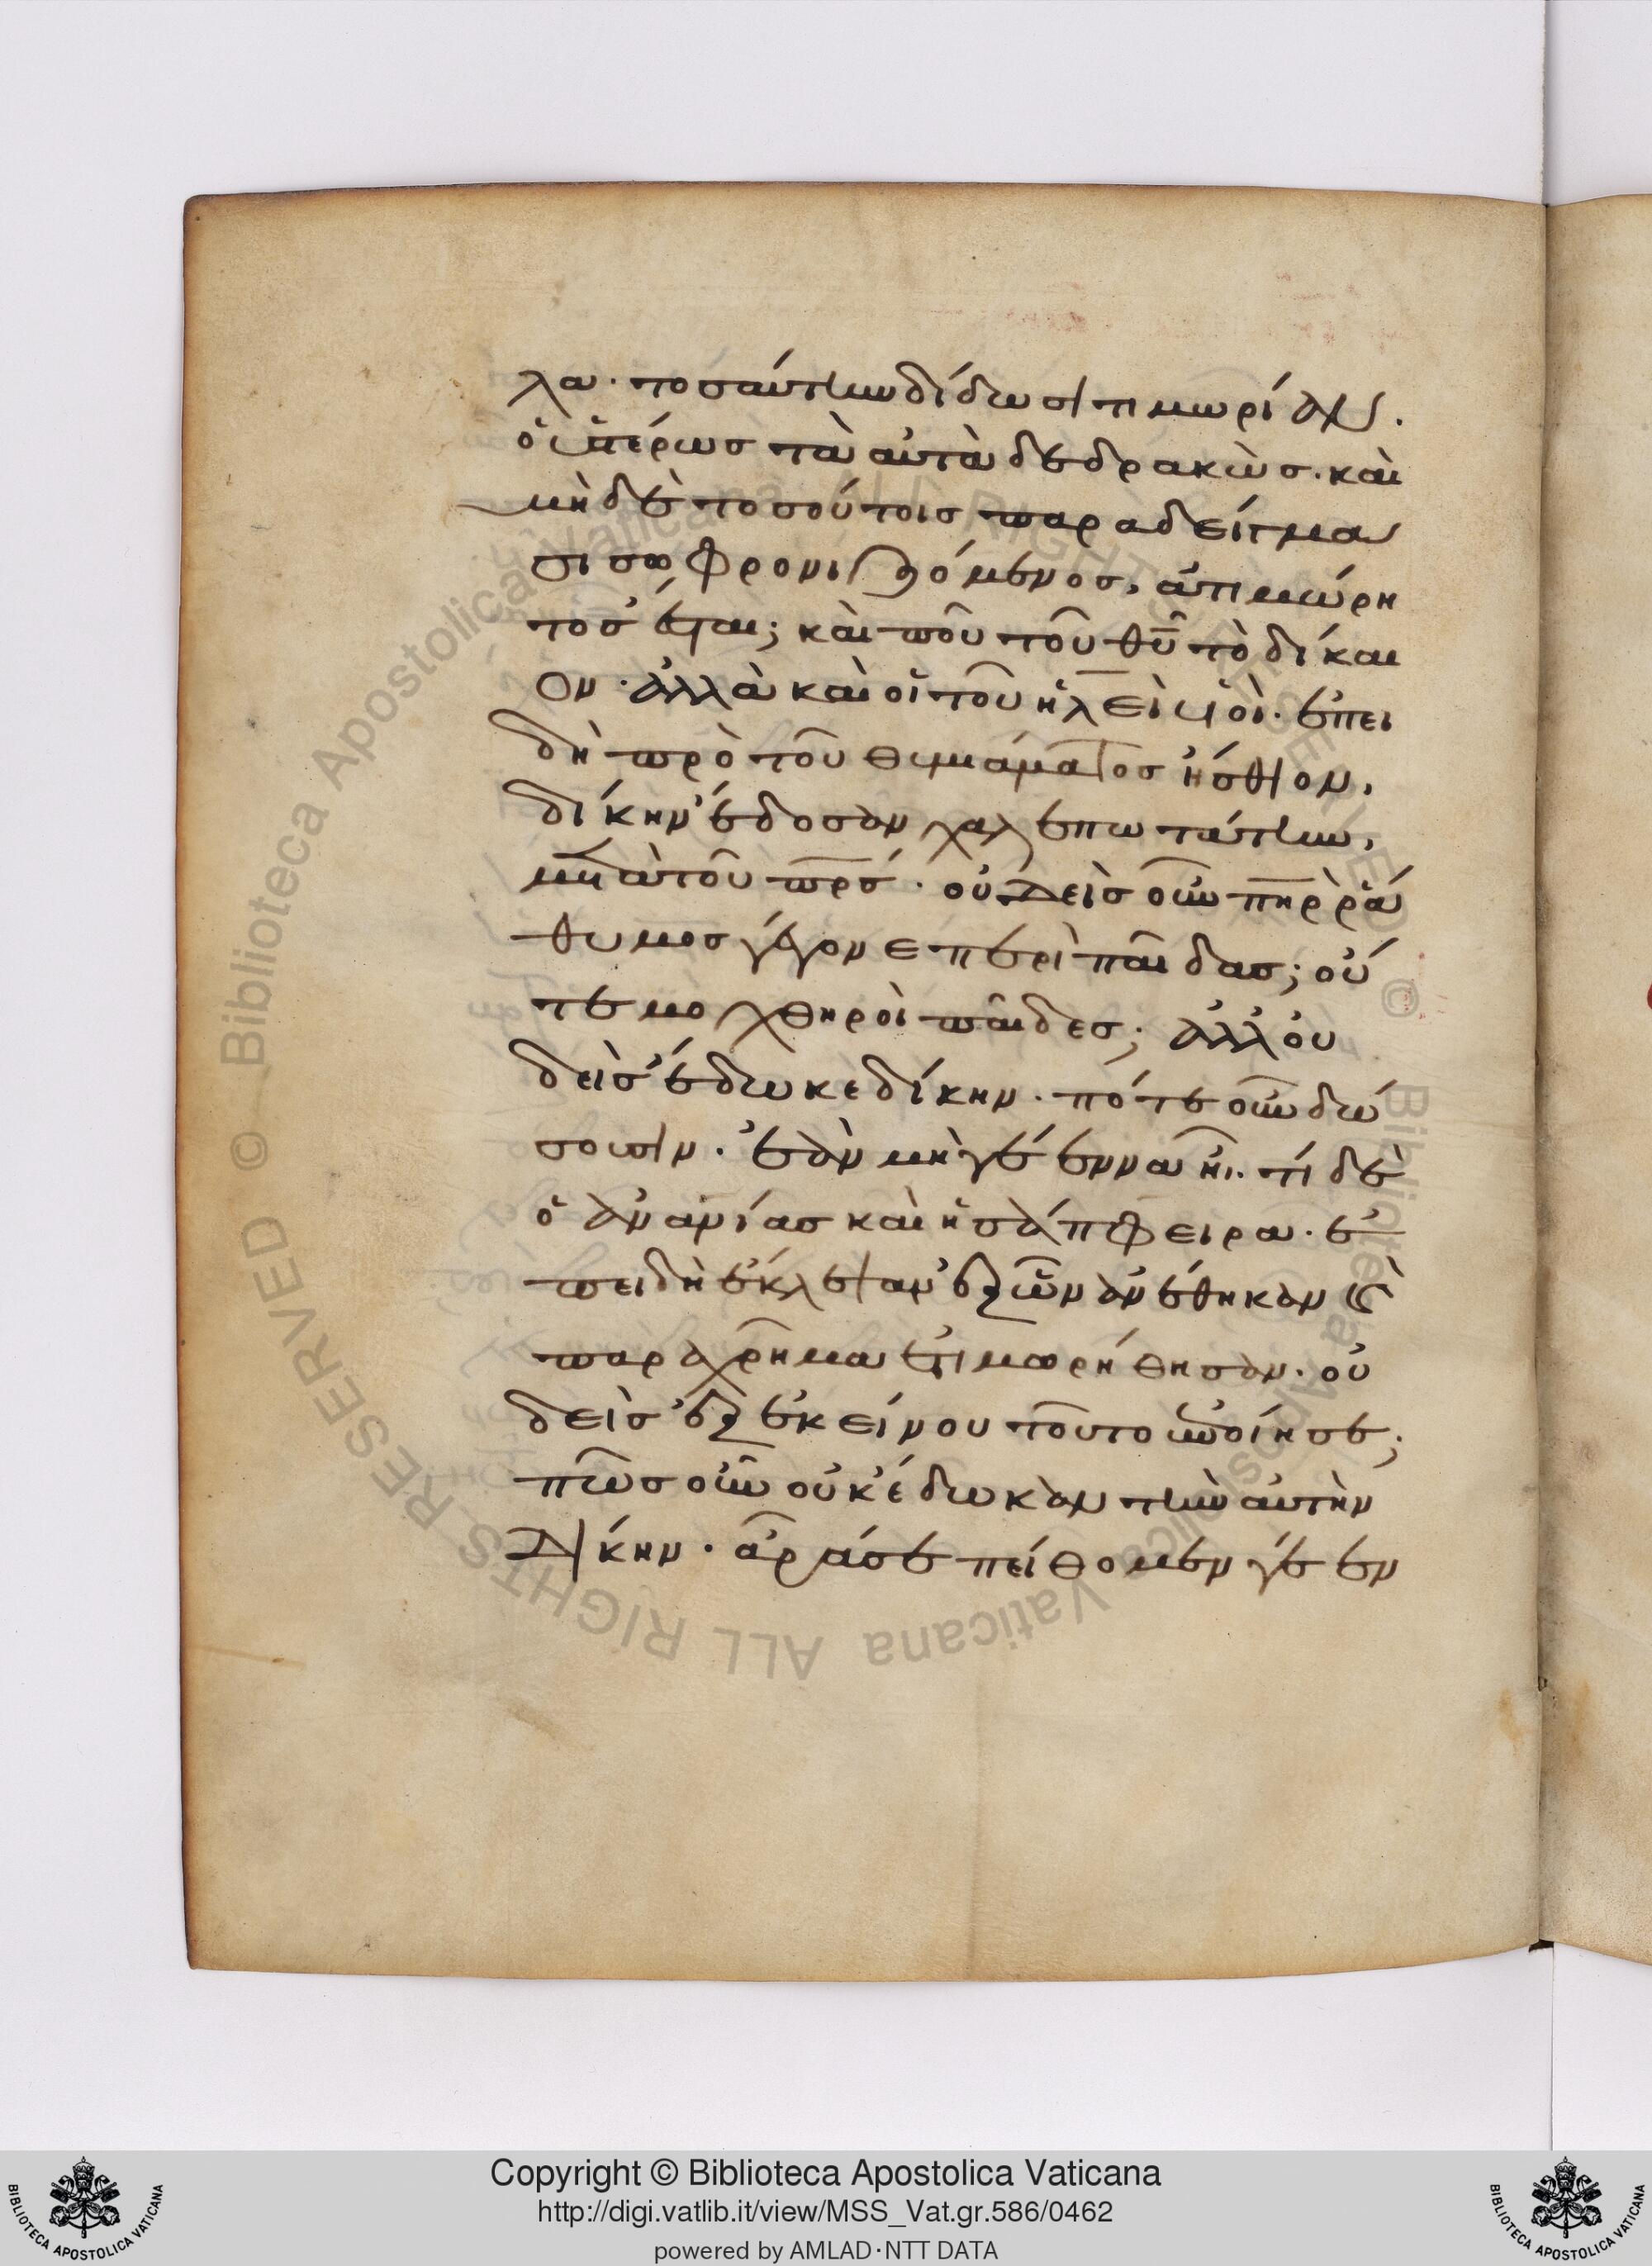 λα· τοσαύτην δίδωσι τιμωρίαν.
ὁ ὑστέρως τὰ αὐτὰ δεδρακὼς. καὶ
μὴ δὲ τοσούτοις παραδείγμα
σι σωφρονιζόμενος, ἀτιμώρη
τος ἔσται; καὶ ποῦ τοῦ θῦ τὸ δίκαι
ον· ἀλλὰ καὶ οἱ τοῦ ἠλεὶ υἱοὶ. ἐπει
δὴ πρὸ τοῦ θυμιάματος ἤσθιον,
δίκην ἔδοσαν χαλεπωτάτην,
μετὰ τοῦ πρς· οὐδεὶς οὖν πηρ ῥά
θυμος γέγονε περὶ παῖδας; οὔ
τε μοχθηροὶ παῖδες; ἀλλ' οὐ
δεὶς ἔδωκε δίκην. πότε οὖν δώ
σουσιν. ἐὰν μὴ γέεννα ἦι. τί δὲ
ὁ ἀνανίας καὶ ἡ σάπφειρα. ἐ
πειδὴ ἔκλεψαν ἐξ ὧν ἀνέθηκαν οὐ
παραχρῆμα ἐτιμωρήθησαν. οὐ
δεὶς ἐξ ἐκείνου τοῦτο ἐποίησε;
πῶς οὖν οὐκ ἔδωκαν τὴν αὐτὴν
δίκην. ἆρά σε πείθομεν γέεν
Copyright © Biblioteca Apostolica Vaticana
http://digi.vatlib.it/view/MSS_Vat.gr.586/0462
powered by AMLAD·NTT DATA
BIBLIOTECA APOSTOLICA VATICANA
BIBLIOTECA APOSTOLICA VATICANA
© Biblioteca Apostolica Vaticana ALL RIGHTS RESERVED © Biblioteca Apostolica Vaticana ALL RIGHTS RESERVED